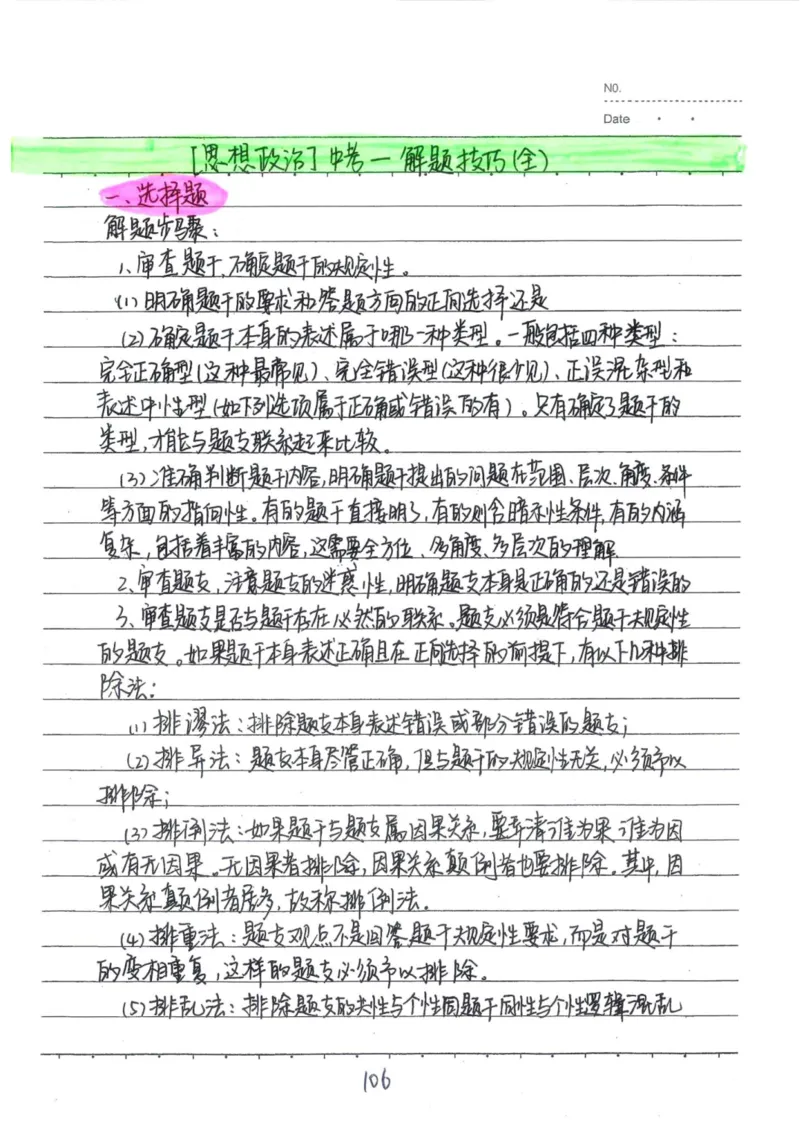 NO.
Date
[思想政治]中考一解题技巧(全)
一、选择题
解题步骤：
1、审查题干,确定题干的规定性。
(1)明确题干的要求和答题方面的正向选择还是
(2)确定题干本身的表述属于哪一种类型。一般包括四种类型：
完全正确型(这种最常见)、完全错误型(这种很少见)、正误混杂型和
表述中性型(如下列选项属于正确或错误的有)。只有确定了题干的
类型,才能与题支联系起来比较。
(3)准确判断题干内容,明确题干提出的问题在范围、层次、角度、条件
等方面的指向性。有的题干直接明了,有的则含暗示性条件,有的内涵
复杂,包括着丰富的内容,这需要全方位、多角度、多层次的理解
2、审查题支,注意题支的迷惑性,明确题支本身是正确的还是错误的
3、审查题支是否与题干存在必然的联系。题支必须是符合题干规定性
的题支。如果题干本身表述正确且在正向选择的前提下,有以下几种排
除法：
(1)排谬法：排除题支本身表述错误或部分错误的题支；
(2)排异法：题支本身尽管正确,但与题干的规定性无关,必须予以
排除；
(3)排倒法：如果题干与题支属因果关系,要弄清谁为果谁为因
或有无因果。无因果者排除,因果关系颠倒者也要排除。其中,因
果关系颠倒者居多,故称排倒法。
(4)排重法：题支观点不是回答题干规定性要求,而是对题干
的变相重复,这样的题支必须予以排除。
(5)排乱法：排除题支的共性与个性同题干同性与个性逻辑混乱
106